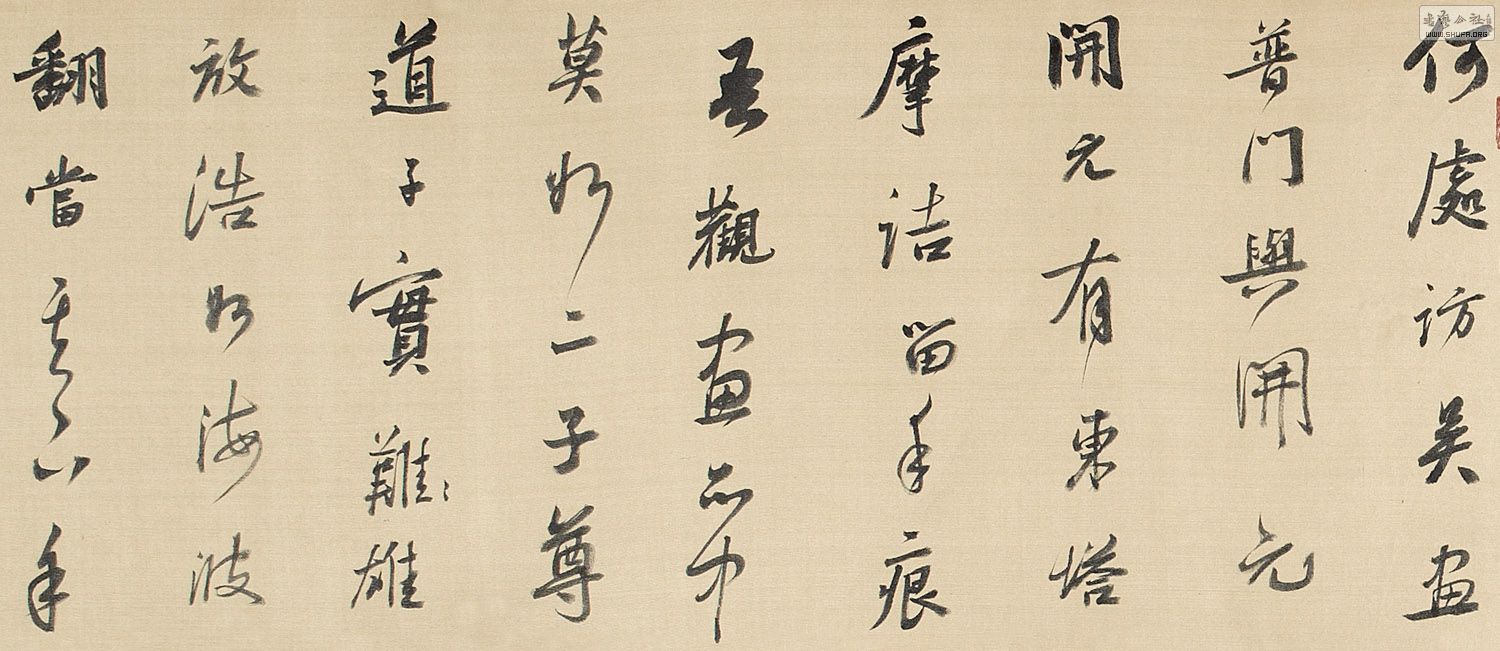 何處訪吳画
普門與開元
開元有東塔
摩詰留手痕
吾觀画品中
莫如二子尊
道子實難雄
放浩如海波
翻當其下手
WWW.SHUFA.ORG